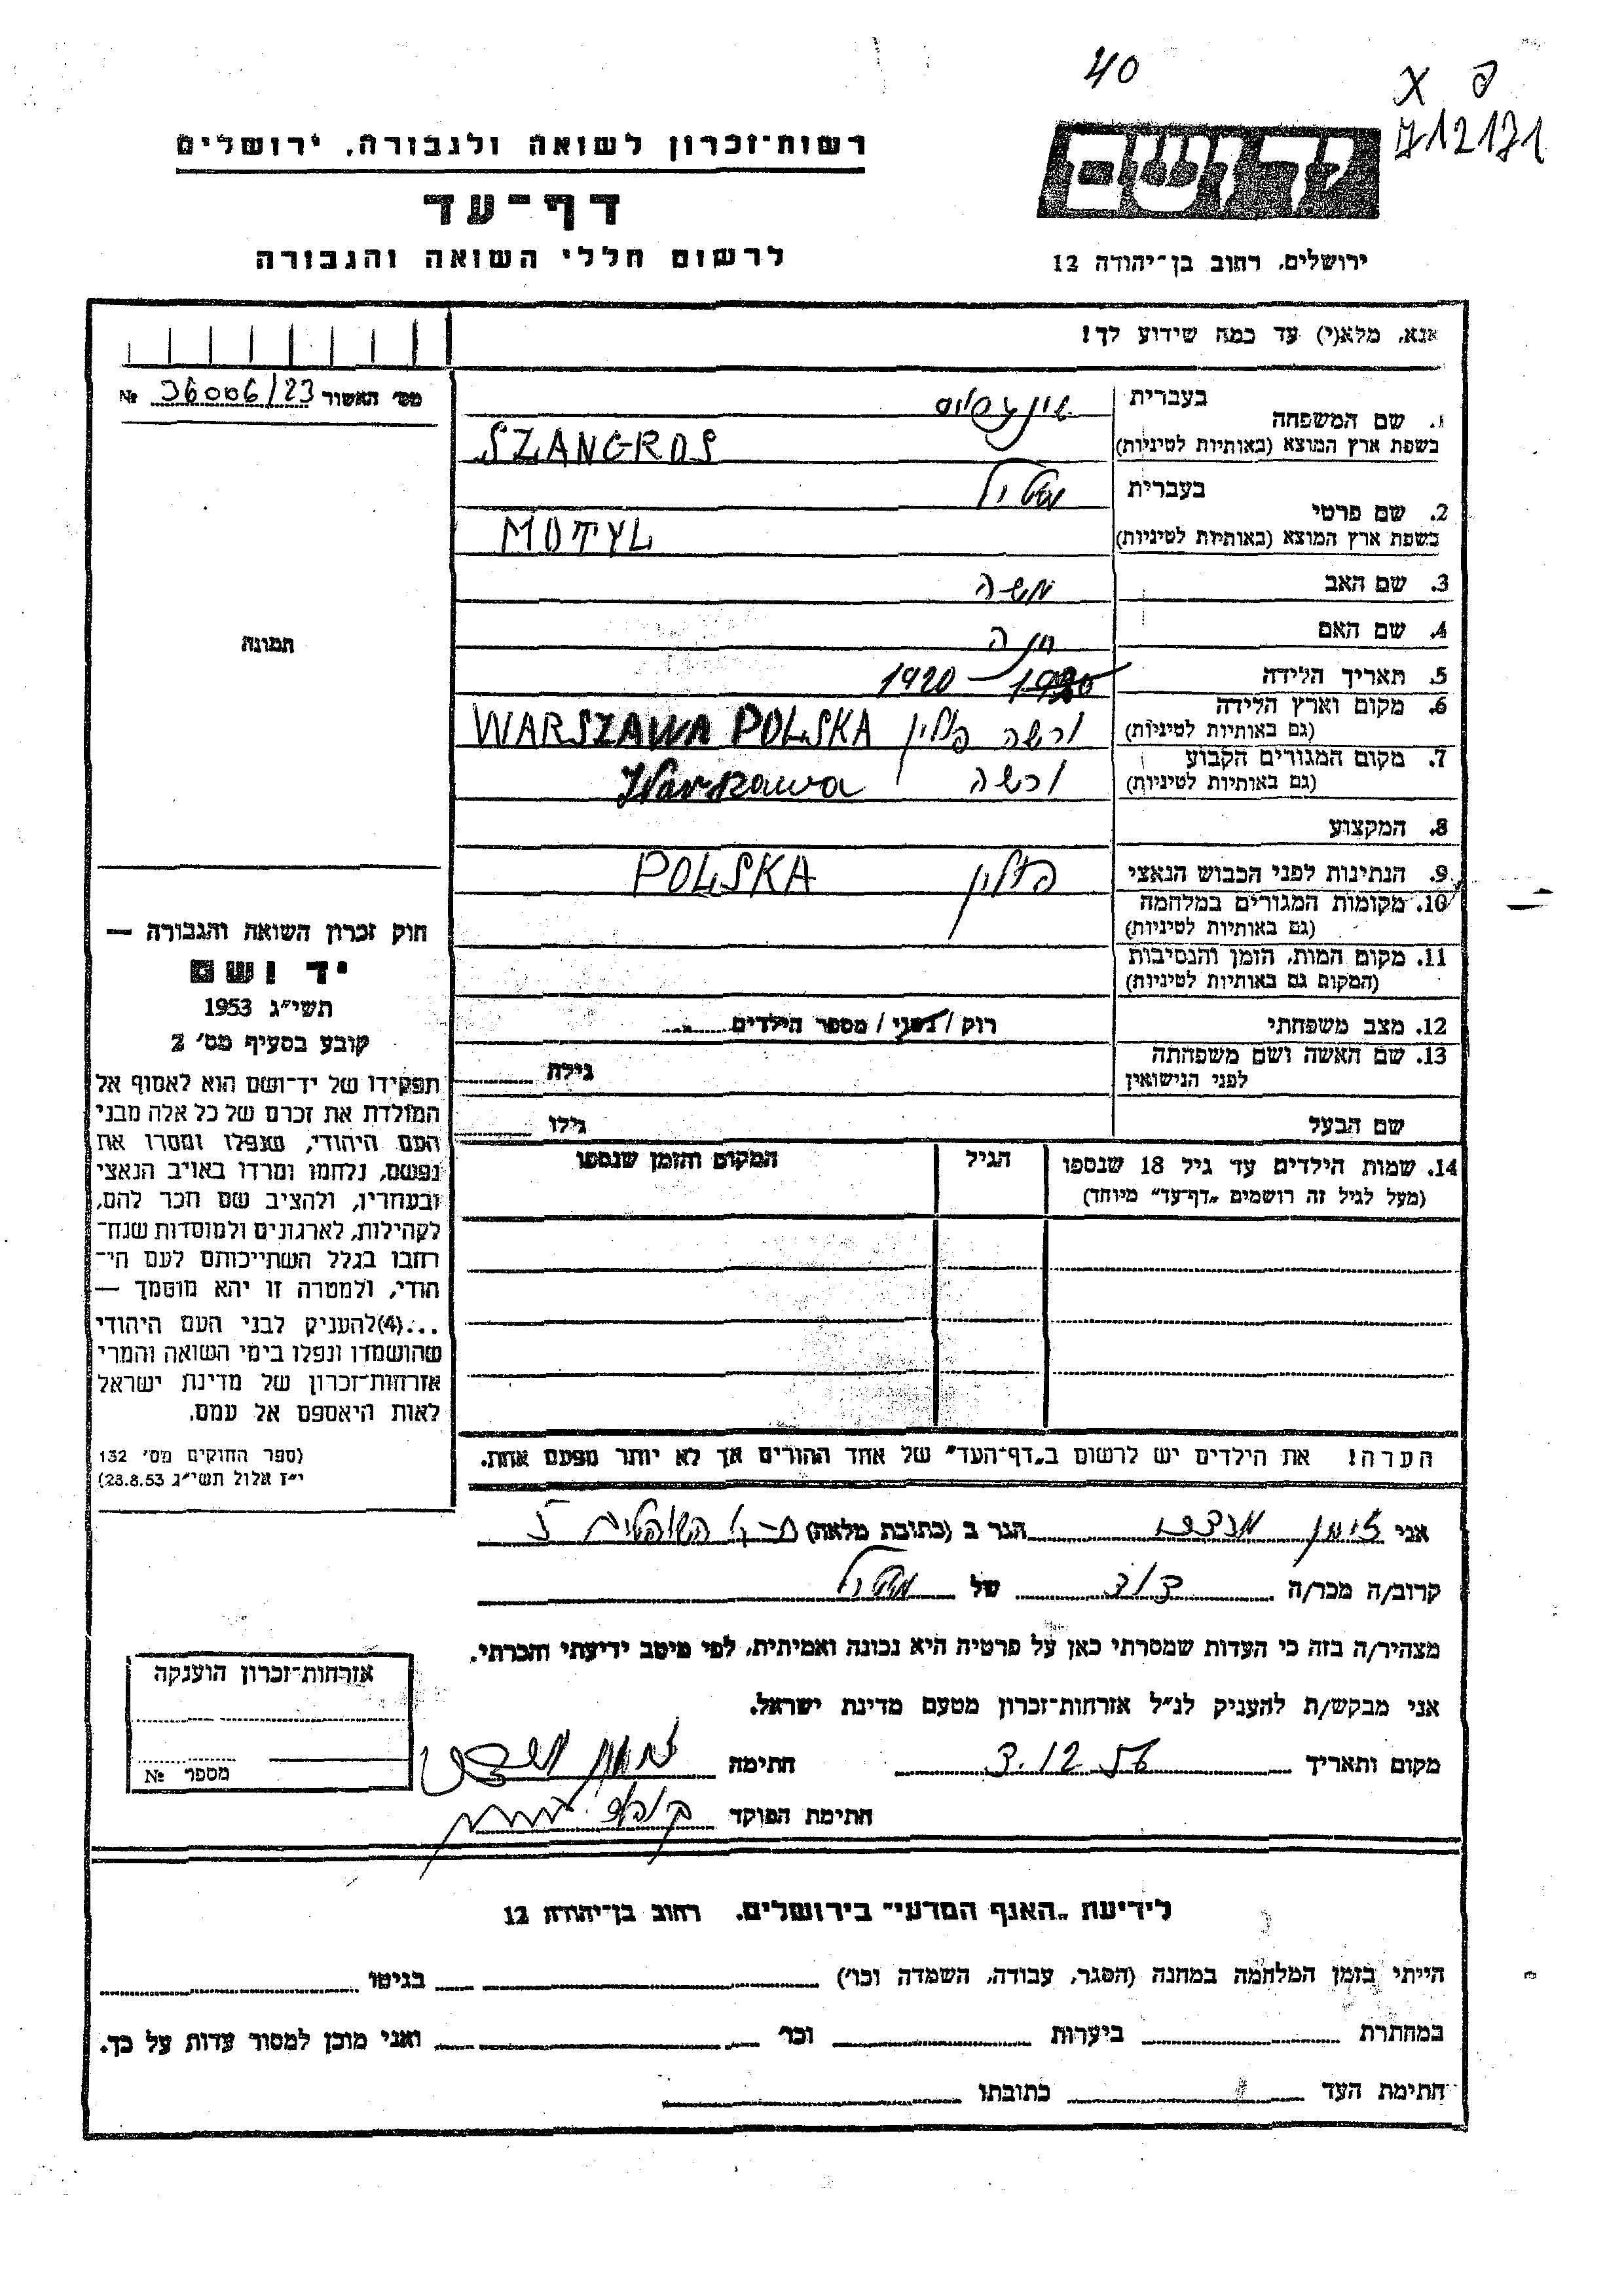 40
רשות־זכרון לשואה ולגבורה, ירושלים
דף־עד
לרשום חללי השואה והגבורה
ידושם
ירושלים, רחוב בן־יהודה 12
אנא, מלא(י) עד כמה שידוע לך!
מס׳ האשור 36006/23 №
1. שם המשפחה
בעברית
בשפת ארץ המוצא (באותיות לטיניות) SZANGROS
2. שם פרטי
בעברית מוטיל
בשפת ארץ המוצא (באותיות לטיניות) MOTYL
3. שם האב משה
4. שם האם חנה
5. תאריך הלידה 1920
6. מקום וארץ הלידה
(גם באותיות לטיניות) ורשה פולין WARSZAWA POLSKA
7. מקום המגורים הקבוע
(גם באותיות לטיניות) ורשה Warszawa
8. המקצוע
9. הנתינות לפני הכבוש הנאצי פולין POLSKA
10. מקומות המגורים במלחמה
(גם באותיות לטיניות)
11. מקום המות, הזמן והנסיבות
(המקום גם באותיות לטיניות)
12. מצב משפחתי רוק / נשוי / מספר הילדים
13. שם האשה ושם משפחתה
לפני הנישואין גילה
שם הבעל גילו
14. שמות הילדים עד גיל 18 שנספו
(מעל לגיל זה רושמים „דף־עד״ מיוחד)
הגיל
המקום והזמן שנספו
הערה! את הילדים יש לרשום ב„דף־העד״ של אחד ההורים אך לא יותר מפעם אחת.
תמונה
חוק זכרון השואה והגבורה —
יד ושם
תשי״ג 1953
קובע בסעיף מס׳ 2
תפקידו של יד־ושם הוא לאסוף אל
המולדת את זכרם של כל אלה מבני
העם היהודי, שנפלו ומסרו את
נפשם, נלחמו ומרדו באויב הנאצי
ובעוזריו, ולהציב שם וזכר להם,
לקהילות, לארגונים ולמוסדות שנח־
רבו בגלל השתייכותם לעם הי־
הודי, ולמטרה זו יהא מוסמך —
...(4)להעניק לבני העם היהודי
שהושמדו ונפלו בימי השואה והמרי
אזרחות־זכרון של מדינת ישראל
לאות היאספם אל עמם.
(ספר החוקים מס׳ 132
י״ז אלול תשי״ג 28.8.53)
אני הגר ב (כתובת מלאה)
קרוב/ה מכר/ה דוד של מוטיל
מצהיר/ה בזה כי העדות שמסרתי כאן על פרטיה היא נכונה ואמיתית, לפי מיטב ידיעתי והכרתי.
אני מבקש/ת להעניק לנ״ל אזרחות־זכרון מטעם מדינת ישראל.
מקום ותאריך 3.12.56 חתימה
חתימת הפוקד
אזרחות־זכרון הוענקה
מספר №
לידיעת „האגף המדעי״ בירושלים, רחוב בן־יהודה 12
הייתי בזמן המלחמה במחנה (הסגר, עבודה, השמדה וכו׳) בגיטו
במחתרת ביערות וכו׳ ואני מוכן למסור עדות על כך.
חתימת העד כתובתו